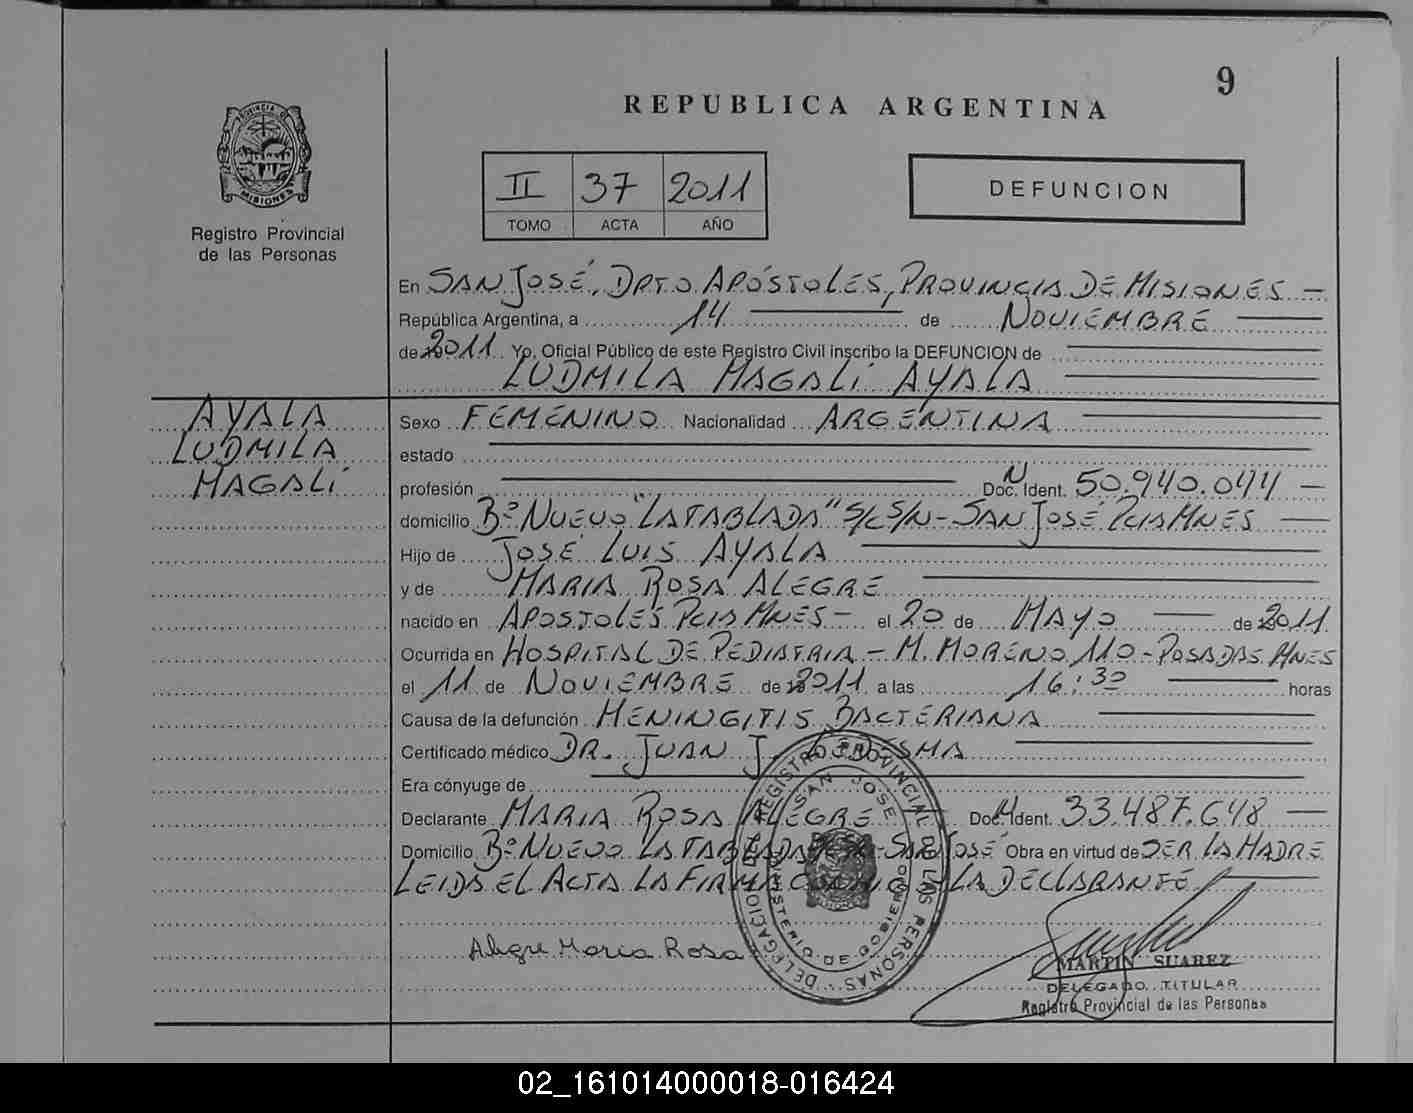 9
REPUBLICA ARGENTINA
PROVINCIA DE
MISIONES
Registro Provincial
de las Personas
II 37 2011
TOMO ACTA AÑO
DEFUNCION
En SAN JOSÉ, DPTO APÓSTOLES, PROVINCIA DE MISIONES
República Argentina, a 14 de NOVIEMBRE
de 2011 Yo, Oficial Público de este Registro Civil inscribo la DEFUNCION de
LUDMILA MAGALÍ AYALA
AYALA
LUDMILA
MAGALÍ
Sexo FEMENINO Nacionalidad ARGENTINA
estado
profesión Doc. Ident. 50.940.044
domicilio Bº NUEVO "LA TABLADA" S/C S/N - SAN JOSÉ PCIA MNES
Hijo de JOSÉ LUIS AYALA
y de MARIA ROSA ALEGRE
nacido en APOSTOLES PCIA MNES - el 20 de MAYO de 2011
Ocurrida en HOSPITAL DE PEDIATRIA - M. MORENO 110 - POSADAS MNES
el 11 de NOVIEMBRE de 2011 a las 16:30 horas
Causa de la defunción MENINGITIS BACTERIANA
Certificado médico DR. JUAN J. LEDESMA
Era cónyuge de
Declarante MARIA ROSA ALEGRE Doc. Ident. 33.487.648
Domicilio Bº NUEVO LA TABLADA SAN JOSÉ Obra en virtud de SER LA MADRE
LEIDA EL ACTA LA FIRMA CONMIGO LA DECLARANTE
DELEGACION DEL REGISTRO PROVINCIAL DE LAS PERSONAS
SAN JOSE
MINISTERIO DE GOBIERNO
Alegre Maria Rosa
MARTIN SUAREZ
DELEGADO TITULAR
Registro Provincial de las Personas
02_161014000018-016424